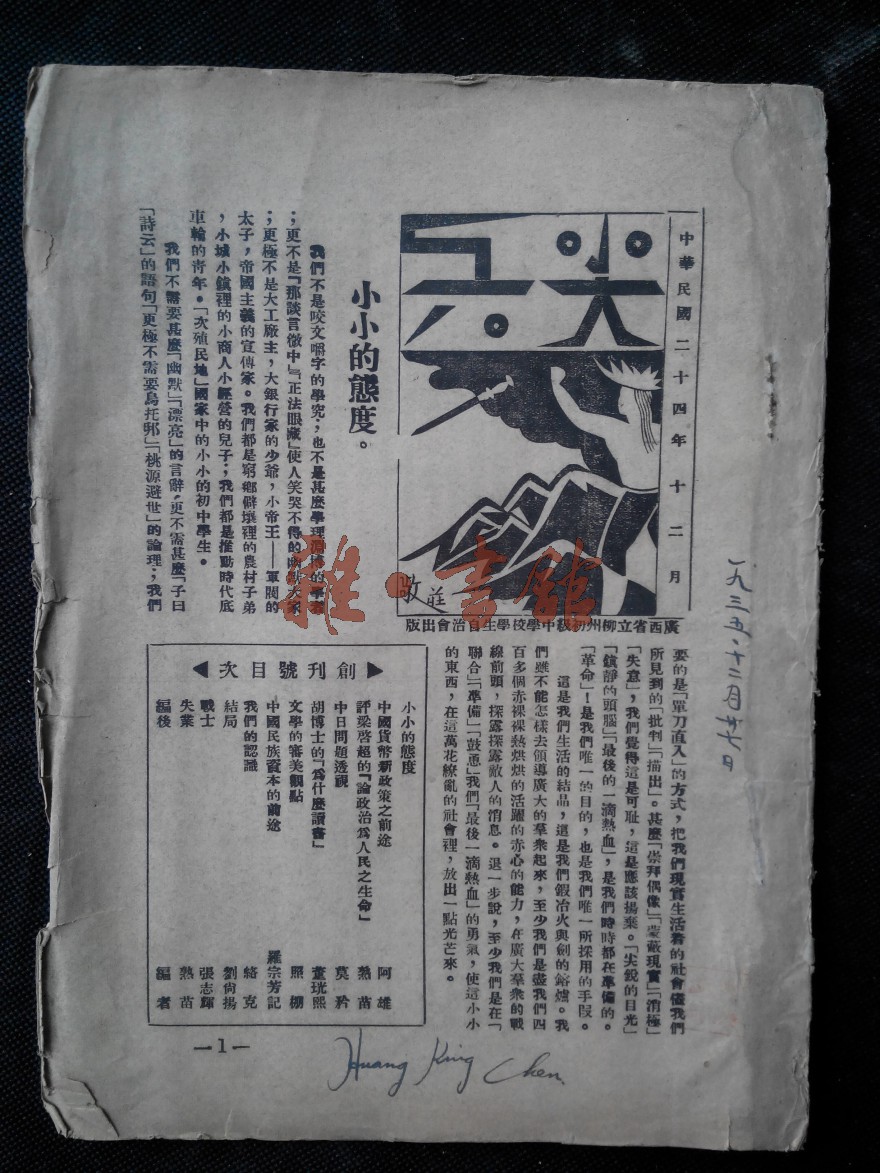 中華民國二十四年十二月
尖兵
敬莊
廣西省立柳州初級中學校學生自治會出版
小小的態度。
我們不是咬文嚼字的學究；也不是甚麼學理淵博的學者
；更不是『那談言微中』『正法眼藏』使人笑哭不得的幽默大家
；更極不是大工廠主，大銀行家的少爺，小帝王——軍閥的
太子，帝國主義的宣傳家。我們都是窮鄉僻壤裡的農村子弟
，小城小鎮裡的小商人小經營的兒子；我們都是推動時代底
車輪的青年。「次殖民地」國家中的小小的初中學生。
我們不需要甚麼「幽默」「漂亮」的言辭，更不需甚麼「子曰
「詩云」的語句「更極不需要烏托邦」「桃源避世」的論理；我們
要的是「單刀直入」的方式，把我們現實生活着的社會儘我們
所見到的「批判」「描出」。甚麼「崇拜偶像」「蒙蔽現實」「消極」
「失意」，我們覺得這是可耻，這是應該揚棄。「尖銳的目光」
「鎮靜的頭腦」「最後的一滴熱血」，是我們時時都在準備的。
「革命」！是我們唯一的目的，也是我們唯一所採用的手段。
這是我們生活的結晶，這是我們鍜冶火與劍的鎔爐。我
們雖不能怎樣去領導廣大的羣衆起來，至少我們是盡我們四
百多個赤裸裸熱烘烘的活躍的赤心的能力，在廣大羣衆的戰
線前頭，探露探露敵人的消息。退一步說，至少我們是在「
聯合」「準備」「鼓動」我們「最後一滴熱血」的勇氣，使這小小
的東西，在這萬花繚亂的社會裡，放出一點光芒來。
創刊號目次
小小的態度
中國貨幣新政策之前途 阿雄
評梁啓超的『論政治爲人民之生命』 熱苗
中日問題透視 莫矜
胡博士的『爲什麼讀書』 董珖熙
文學的審美觀點 照棚
中國民族資本的前途 羅宗芳記
我們的認識 絡克
結局 劉尙揚
戰士 張志輝
失業 熱苗
編後 編者
—1—
一九三五·十二月廿七日
Huang King Chen
雅·書館